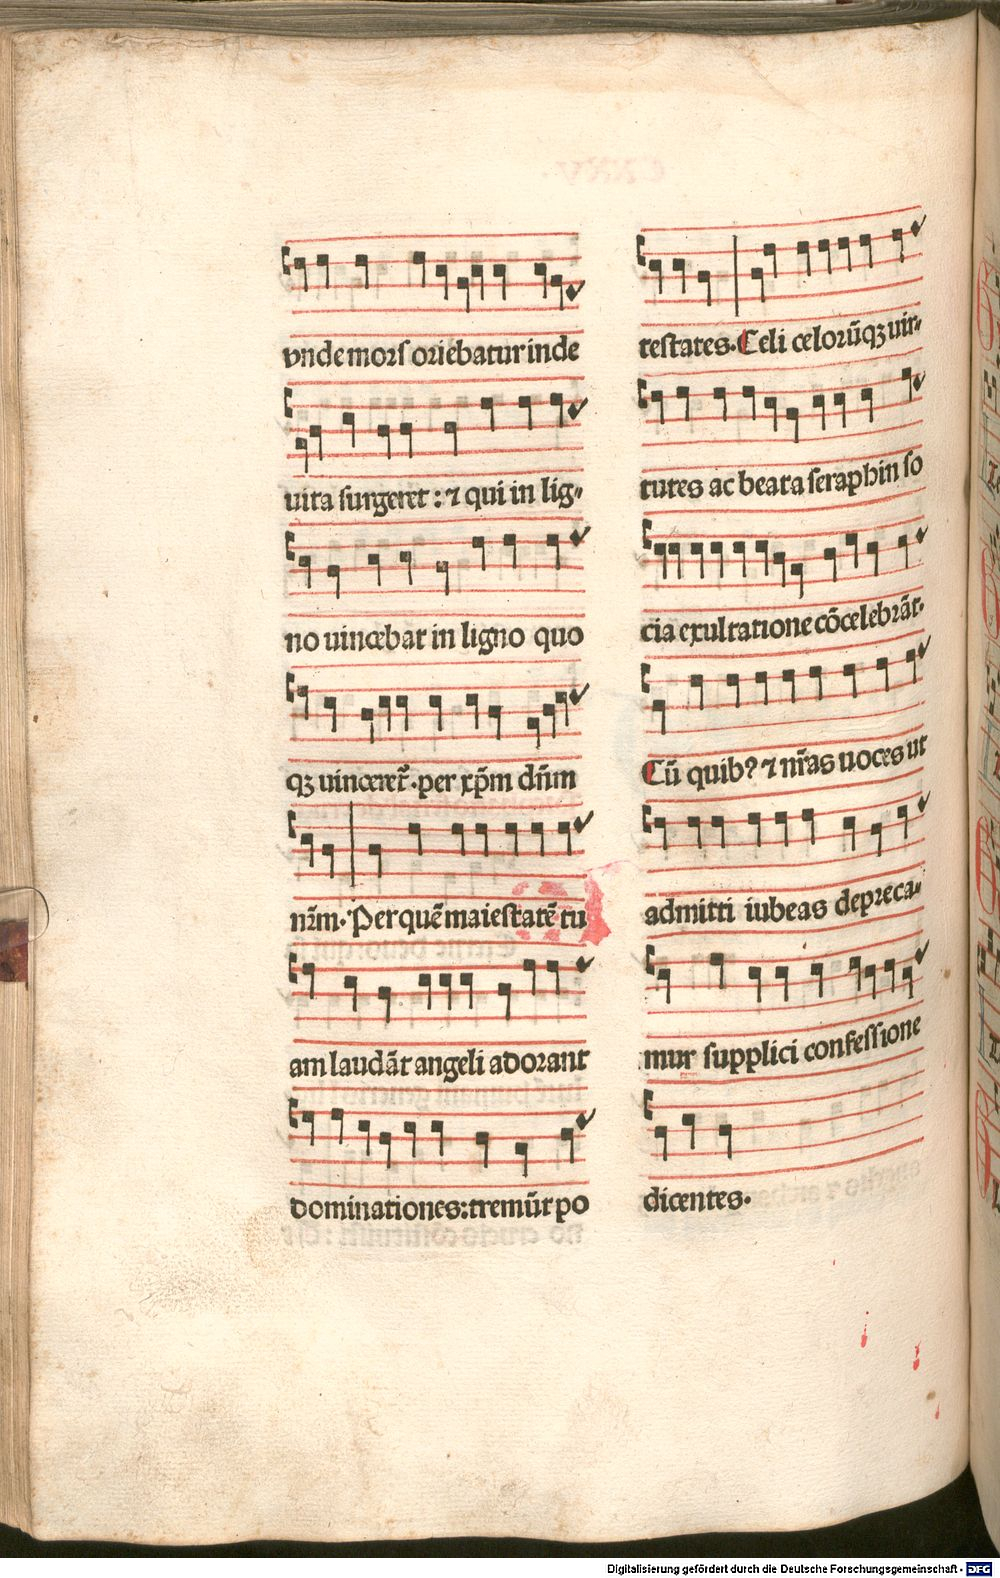 vnde mors oriebatur inde
uita surgeret : ⁊ qui in lig⸗
no uincebat in ligno quo
qꝫ uinceret᷑. per xp̄m dn̄m
nr̄m. Per quē maiestatē tu
am laudāt angeli adorant
dominationes: tremūt po
testates. Celi celorūqꝫ uir⸗
tutes ac beata seraphin so
cia exultatione cōcelebrāt.
Cū quibꝰ ⁊ nr̄as uoces ut
admitti iubeas depreca⸗
mur supplici confessione
dicentes.
Digitalisierung gefördert durch die Deutsche Forschungsgemeinschaft - DFG